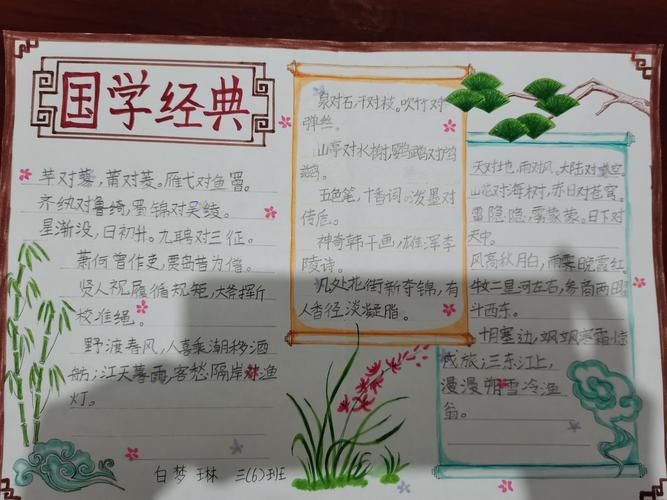 国学经典
芋对蓼,莆对菱。雁弋对鱼罾。
齐纨对鲁绮,蜀锦对吴绫。
星渐没,日初升。九聘对三征。
萧何曾作吏,贾岛昔为僧。
贤人视履循规矩,大斧挥斤
校准绳。
野渡春风,人喜乘潮移酒
舫;江天暮雨,客愁隔岸对渔
灯。
泉对石,干对枝。吹竹对
弹丝。
山亭对水榭,鹦鹉对鸬
鹚。
五色笔,十香词。泼墨对
传卮。
神奇韩干画,雄浑李
陵诗。
几处花街新夺锦,有
人香径淡凝脂。
天对地,雨对风。大陆对长空。
山花对海树,赤日对苍穹。
雷隐隐,雾蒙蒙。日下对
天中。
风高秋月白,雨霁晚霞红。
牛女二星河左右,参商两曜
斗西东。
十月塞边,飒飒寒霜惊
戍旅;三冬江上,
漫漫朔雪冷渔
翁。
白梦琳 三(6)班